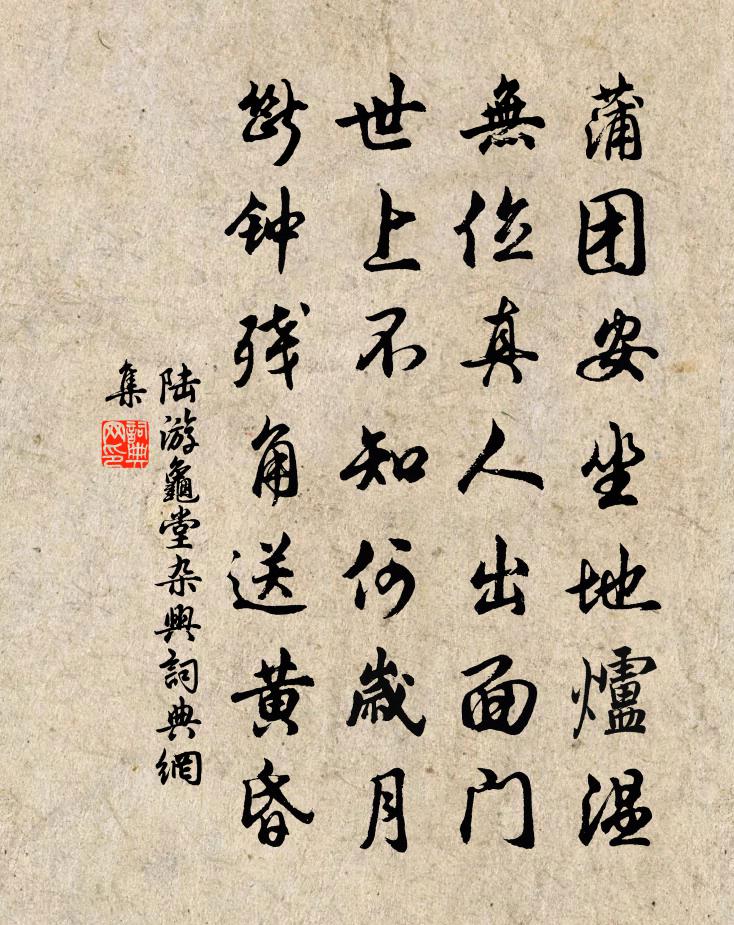 蒲团安坐地爐温
無位真人出面门
世上不知何歲月
斷钟残角送黄昏
陆游龜堂杂興詞典網
集
詞典
网印